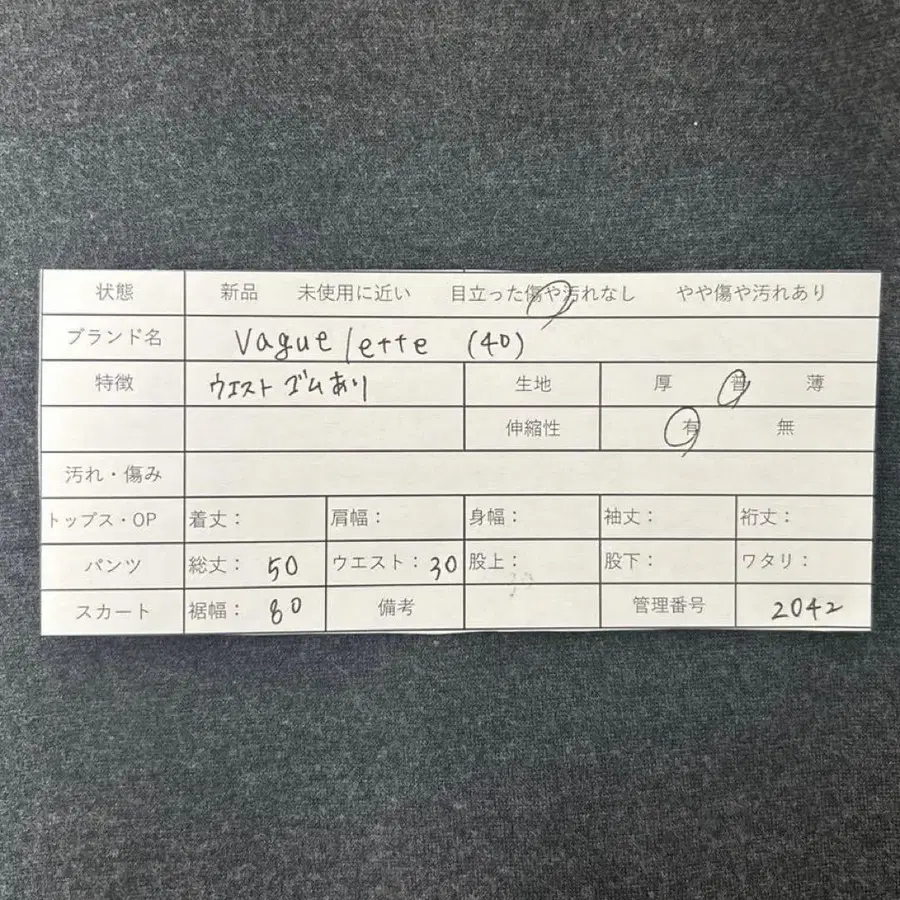 状態 新品 未使用に近い 目立った傷や汚れなし やや傷や汚れあり
ブランド名 Vague lette (40)
特徴 ウエスト ゴムあり 生地 厚 普 薄
伸縮性 有 無
汚れ・傷み
トップス・OP 着丈: 肩幅: 身幅: 袖丈: 裄丈:
パンツ 総丈: 50 ウエスト: 30 股上: 股下: ワタリ:
スカート 裾幅: 80 備考 管理番号 2042